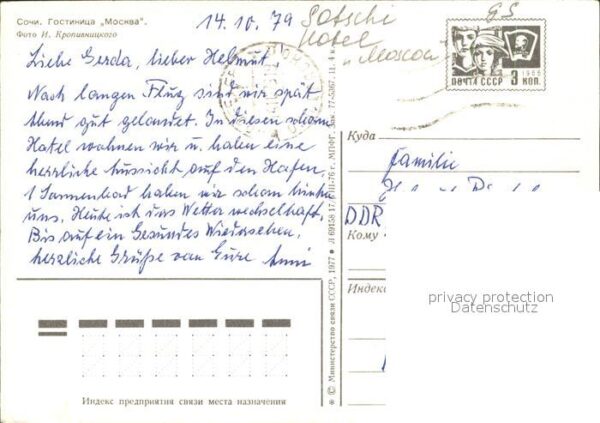 Сочи. Гостиница „Москва".
Фото И. Кропивницкого
14.10.79
Sotschi
Hotel
„Moscou"
GS
1966
ПОЧТА СССР 3 КОП.
Liebe Gerda, lieber Helmut,
Nach langen Flug sind wir spät
Abend gut gelandet. In diesen schönen
Hotel wohnen wir u. haben eine
herrliche Aussicht auf den Hafen.
1 Sonnenbad haben wir schon hinter
uns. Heute ist das Wetter wechselhaft.
Bis auf ein Gesundes Wiedersehen,
herzliche Grüße von Eure Anni
Куда
Familie
DDR
Кому
Индекс
privacy protection
Datenschutz
© Министерство связи СССР, 1977 • Л 69158 17/VIII-76 г. МПФГ. Зак. 77-5367. 11. 4 к
Индекс предприятия связи места назначения